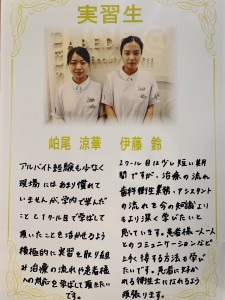 実習生
岵尾 涼華
伊藤 鈴
アルバイト経験も少なく
現場にはあまり慣れて
いませんが、学内で学んだ
こと と1クール目で学ばして
頂いたことを活かせるよう
積極的に実習を取り組み
治療の流れや患者様
への対応を学ばして頂きた
いです。
2クール目は少し短い期
間ですが、治療の流れ
歯科衛生業務・アシスタント
の流れを今の知識より
もより深く学びたいと
思しています。患者様一人一人
とのコミュニケーションなど
上手く接する方法も学び
たいです。患者に好か
れる衛生士になれるよう
頑張ります。